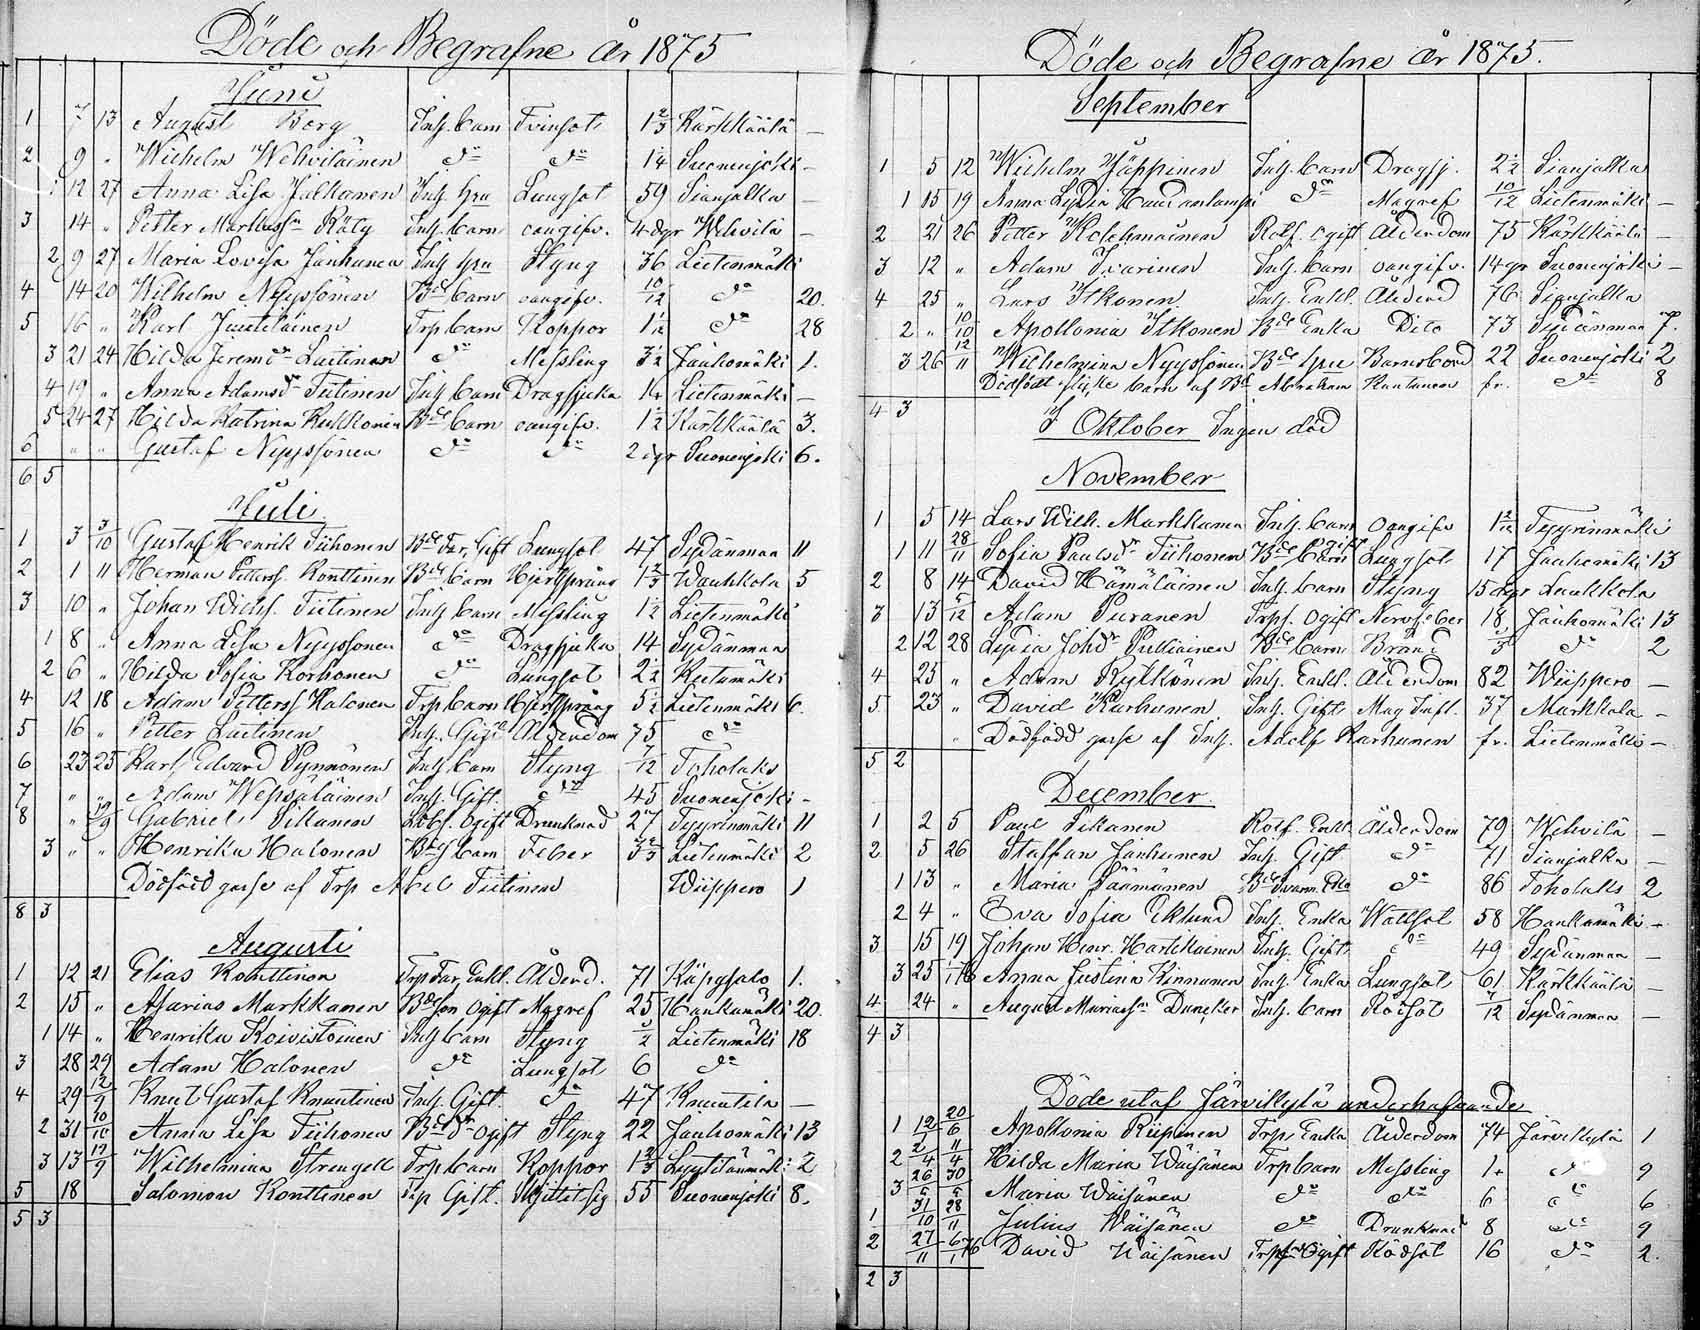 Döde och Begrafne År 1875
Juni
1 7 13 August Borg Inh. barn Tvinsot 1 2/3 Kärkkäälä –
2 9 " Wilhelm Wehviläinen do do 1/4 Suonenjoki –
1 12 27 Anna Lisa Jalkanen Inh. hru Lungsot 59 Sianjalka –
3 14 " Petter Markuss. Räty Inh. barn oangifv. 4 dgr Wehvilä –
2 9 27 Maria Lovisa Janhunen Inh. hru Styng 36 Lietenmäki
4 14 20 Wilhelm Nyyssönen Bde barn oangifv. 10/12 do 20.
5 16 " Karl Juutilainen Trp barn Koppor 1 1/2 do 28
3 21 24 Hilda Jeremdr Luttinen do Messling 3 1/2 Jauhomäki 1.
4 19 " Anna Adamsdr Tiitinen Inh. barn Dragsjuka Lietenmäki –
5 24 27 Hilda Katrina Kukkonen Bde barn oangifv. 1 1/2 Kärkkäälä 3.
6 " " Gustaf Nyyssönen do do 2 dgr Suonenjoki 6.
6 5
Juli
1 3 3/10 Gustaf Henrik Tiihonen Bde Far, Gift Lungsot 47 Sydänmaa 11
2 1 11 Herman Petters. Konttinen Bde barn Hjertsprång 1 2/3 Wauhkola 5
3 10 " Johan Wichs. Tiitinen Inh. barn Messling 1 1/2 Lietenmäki
1 8 " Anna Lisa Nyyssonen do Dragsjuka 14 Sydänmaa
2 6 " Hilda Sofia Korhonen do Lungsot 2 1/2 Kutumäki
4 12 18 Adam Petterss Halonen Trp barn Hjertsprång 5 1/2 Lietenmäki 6.
5 16 " Petter Luttinen Inh. Gift Ålderdom 75 do
6 23 25 Karl Edvard Pynnönen Inh. barn Styng 7/12 Toholaks
7 " " Adam Wepsäläinen Inh. Gift. do 45 Suonenjoki –
8 " 12/9 Gabriel Pikanen Ogift Drunknad 27 Tyyrinmäki 11
3 " " Henrika Halonen Bde barn Feber Lietenmäki 2
Dödfödd gosse af Trp Abel Tiitinen Wiippero 1
8 3
Augusti
1 12 21 Elias Konttinen Trp Far, Enkl. Ålderd. 71 Käpysalo 1.
2 15 " Asarias Markkanen Bde son Ogift Magref 25 Hankamäki 20.
1 14 " Henrika Koivistoinen Inh barn Styng Lietenmäki 18
3 28 29 Adam Halonen do Lungsot 6 do
4 29 12/9 Knut Gustaf Knuutinen Inh. Gift. do 47 Knuutila –
2 31 10/10 Anna Lisa Tiihonen Bde dr Ogift Styng 22 Jauhomäki 13
3 13 12/9 Wilhelmina Strengell Trp barn Koppor 1 2/3 Lyytilänmäki 2
5 18 Salomon Konttinen Trp Gift. 55 Suonenjoki 8.
5 3
Döde och Begrafne År 1875.
September
1 5 12 Wilhelm Jäppinen Inh. barn Dragsj. 2 1/2 Sianjalka
1 15 19 Anna Lydia Haudanlampi do Magref 10/12 Lietenmäki –
2 21 26 Petter Kolehmainen Rotf. Ogift Ålderdom 75 Kärkkäälä –
3 12 " Adam Ivarinen Inh. barn oangifv. 14 gr Suonenjoki –
4 25 " Lars Itkonen Inh. Enkl. Ålderd 76 Sianjalka
2 " 10/10 Apollonia Itkonen Bde Enka Dito 73 Sydänmaa 7.
3 26 12/11 Wilhelmina Nyyssönen Bde hru Barnsbörd 22 Suonenjoki 2
Dödfödt flicke barn af Bd. Abraham Rautanen fr. do 8
4 3
I Oktober Ingen död
November
1 5 14 Lars Wilh. Markkanen Inh. barn Oangifv 1 2/12 Tyyrinmäki
1 11 28/11 Sofia Paulsdr Tiihonen Bde barn Ogift Lungsot 17 Jauhomäki 13
2 8 14 David Hämäläinen Inh. barn Styng 15 dgr Laukkola
3 13 5/12 Adam Puranen Trps. Ogift Nervfeber 18 Jauhomäki 13
2 12 28 Lydia Johdr Pulliainen Bde barn Bränd do 2
4 25 " Adam Rytkönen Inh. Enkl. Ålderdom 82 Wiippero –
5 23 " David Karhunen Inh. Gift Mag Infl. 37 Markkala –
" Dödfödd gosse af Inh. Adolf Karhunen fr. Lietenmäki –
5 2
December
1 2 5 Paul Pikanen Rotf. Enkl. Ålderdom 79 Wehvilä –
2 5 26 Staffan Janhunen Inh. Gift do 71 Sianjalka –
1 13 " Maria Säämänen Bde Svärm. Eka do 86 Toholaks 2
2 4 " Eva Sofia Eklund Inh. Enka Wattsot 58 Hankamäki –
3 15 19 Johan Henr. Hartikainen Inh. Gift do 49 Sydänmaa –
3 25 1/1 76 Anna Justina Kinnunen Inh. Enka Lungsot 61 Kärkkäälä –
4 24 " August Mariass. Duncker Inh. barn Rödsot 7/12 Sydänmaa –
4 3
Döde utaf Järvikylä underhafvande
1 12/1 20/6 Apollonia Riipinen Trp. Enka Ålderdom 74 Järvikylä 1
2 2/4 11/4 Hilda Maria Wäisänen Trp barn Messling do 9
3 26/5 30/5 Maria Wäisänen do do 6 do 6
1 31/10 28/11 Julius Wäisänen do Drunknad 8 do 9
2 27/11 6/1 76 David Wäisänen Trps. Ogift Rödsot 16 do 2.
2 3